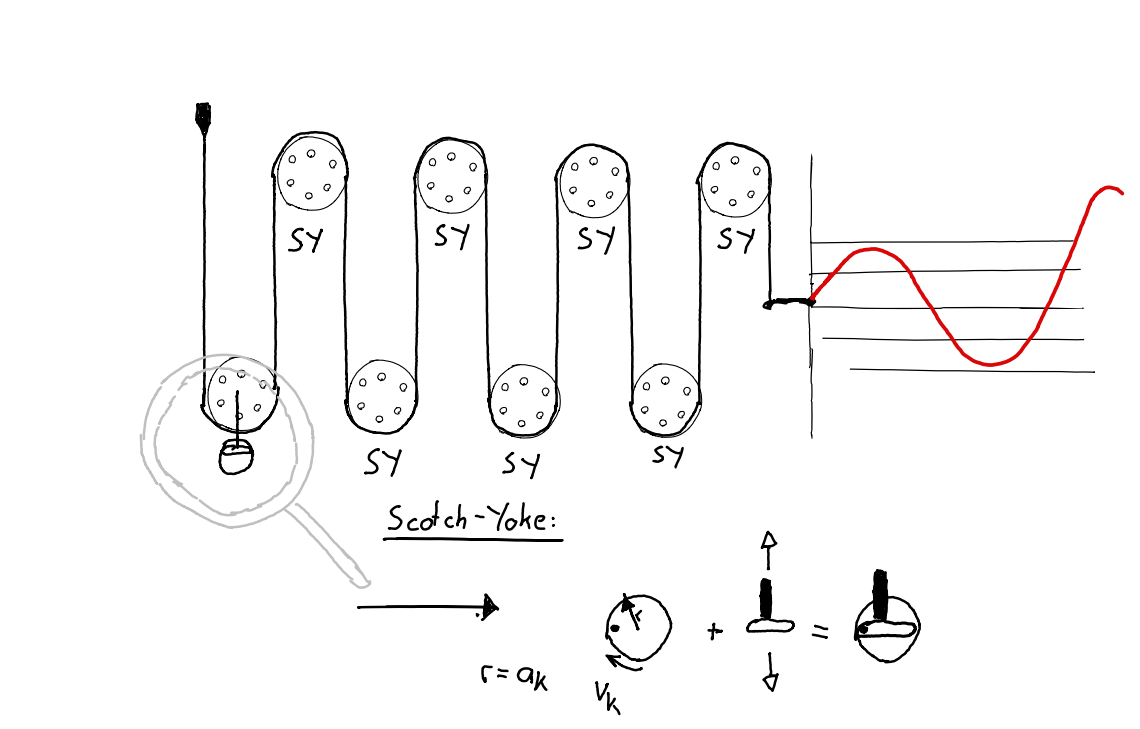 SY
SY
SY
SY
SY
SY
SY
Scotch-Yoke:
r
+
=
r = ak
Vk